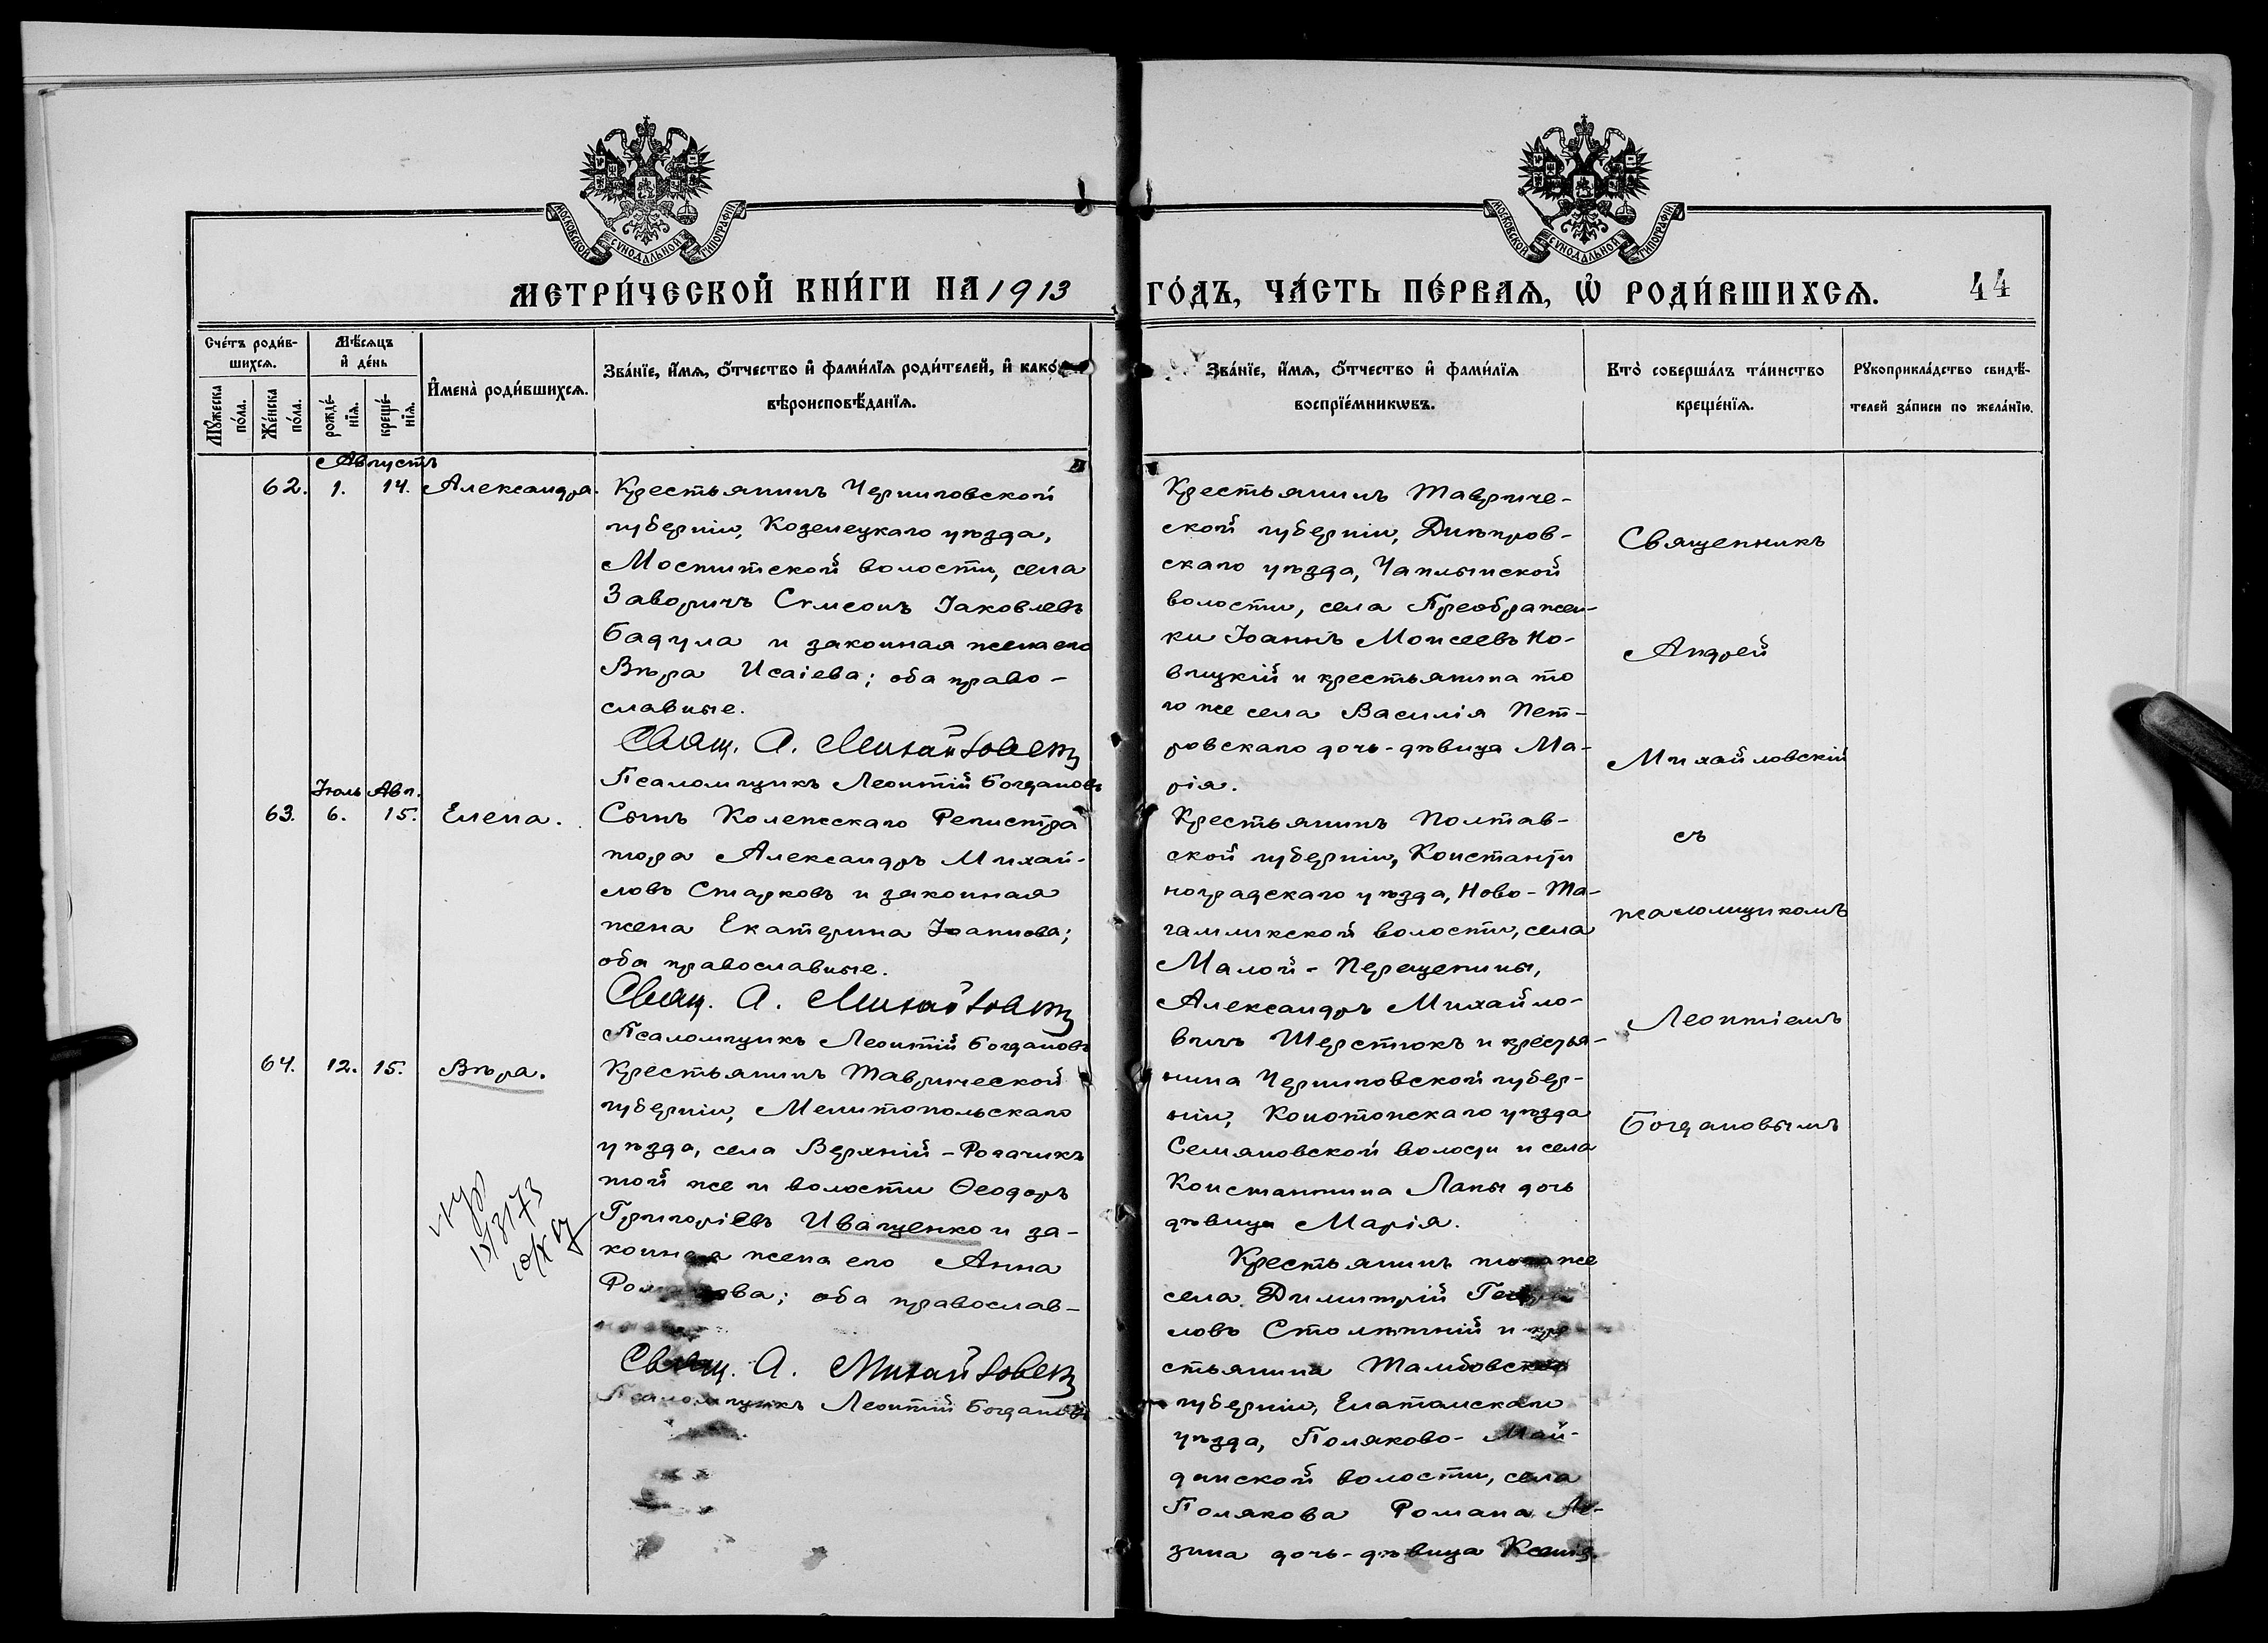 МОСКОВСКОЙ СѴНОДАЛЬНОЙ ТИПОГРАФІИ.
МОСКОВСКОЙ СѴНОДАЛЬНОЙ ТИПОГРАФІИ.
МЕТРИ́ЧЕСКОЙ КНИ́ГИ НА 1913 ГО́ДЪ, ЧА́СТЬ ПЕ́РВАѦ, Ѡ҆ РОДИ́ВШИХСѦ. 44
Сче́тъ роди́в-
шихсѧ.
Мꙋ́жеска
по́ла.
Же́нска
по́ла.
Мѣ́сѧцъ
и҆ де́нь
рожде́-
нїѧ.
креще́-
нїѧ.
И҆мена̀ роди́вшихсѧ.
Зва́нїе, и҆́мѧ, ѻ҆́тчество и҆ фами́лїѧ роди́телей, и҆ како́
вѣроисповѣ́данїѧ.
Зва́нїе, и҆́мѧ, ѻ҆́тчество и҆ фами́лїѧ
воспрїе́мникѡвъ.
Кто̀ соверша́лъ та́инство
креще́нїѧ.
Рꙋкоприкла́дство свидѣ́-
телей за́писи по жела́нїю.
Августъ
62. 1. 14. Александра.
Крестьянинъ Черниговской
губерніи, Козелецкаго уѣзда,
волости, села
Заворичъ Сѵмеонъ Іаковлевъ
Бадула и законная жена его
Вѣра Исаіева; оба право-
славные.
Свящ. А. Михайловскій
Псаломщикъ Леонтій Богдановъ
Крестьянинъ Тавриче-
ской губерніи, Днѣпров-
скаго уѣзда, Чаплынской
волости, села Преображен-
ки Іоаннъ Моисеевъ Но-
вицкій и крестьянина то
го же села Василія Пет-
ровскаго дочь-дѣвица Ма-
рія.
Іюль Авг.
63. 6. 15. Елена.
Сынъ Колежскаго Регистра
тора Александръ Михай-
ловъ Старковъ и законная
жена Екатерина Іоаннова;
оба православные.
Свящ. А. Михайловскій
Псаломщикъ Леонтій Богдановъ
Крестьянинъ Полтав-
ской губерніи, Константи
ноградскаго уѣзда, Ново-Та-
гамликской волости, села
Малой-Перещепины,
Александръ Михайло-
вичъ Шерстюкъ и крестья-
нина Черниговской губер-
ніи, Конотопскаго уѣзда
Семяновской волости и села
Константина Лапы дочь
дѣвица Марія.
64. 12. 15. Вѣра.
Крестьянинъ Таврической
губерніи, Мелитопольскаго
уѣзда, села Верхній-Рогачикъ
той же и волости Ѳеодоръ
Григоріевъ Иващенко и за-
конная жена его Анна
оба православ-
Свящ. А. Михайловскій
Псаломщикъ Леонтій Богдановъ
Крестьянинъ того же
села Димитрій
ловъ Столѣтній и кре
стьянина Тамбовской
губерніи, Елатомскаго
уѣзда, Поляково-Май-
данской волости, села
Полякова Романа
зина дочь-дѣвица Ксенія.
Священникъ
Андрей
Михайловскій
съ
псаломщикомъ
Леонтіемъ
Богдановымъ